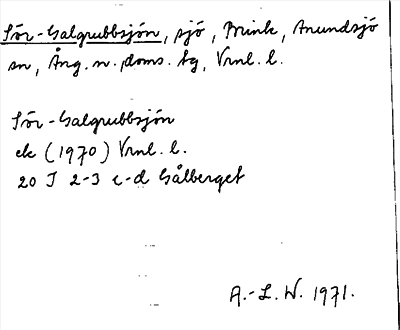 Sör-Galgrubbsjön, sjö, Brink, Anundsjö
sn, Ång. n. doms. tg, Vrnl. l.
Sör-Galgrubbsjön
ek (1970) Vrnl. l.
20 J 2-3 c-d Gålberget
A.-L. W. 1971.